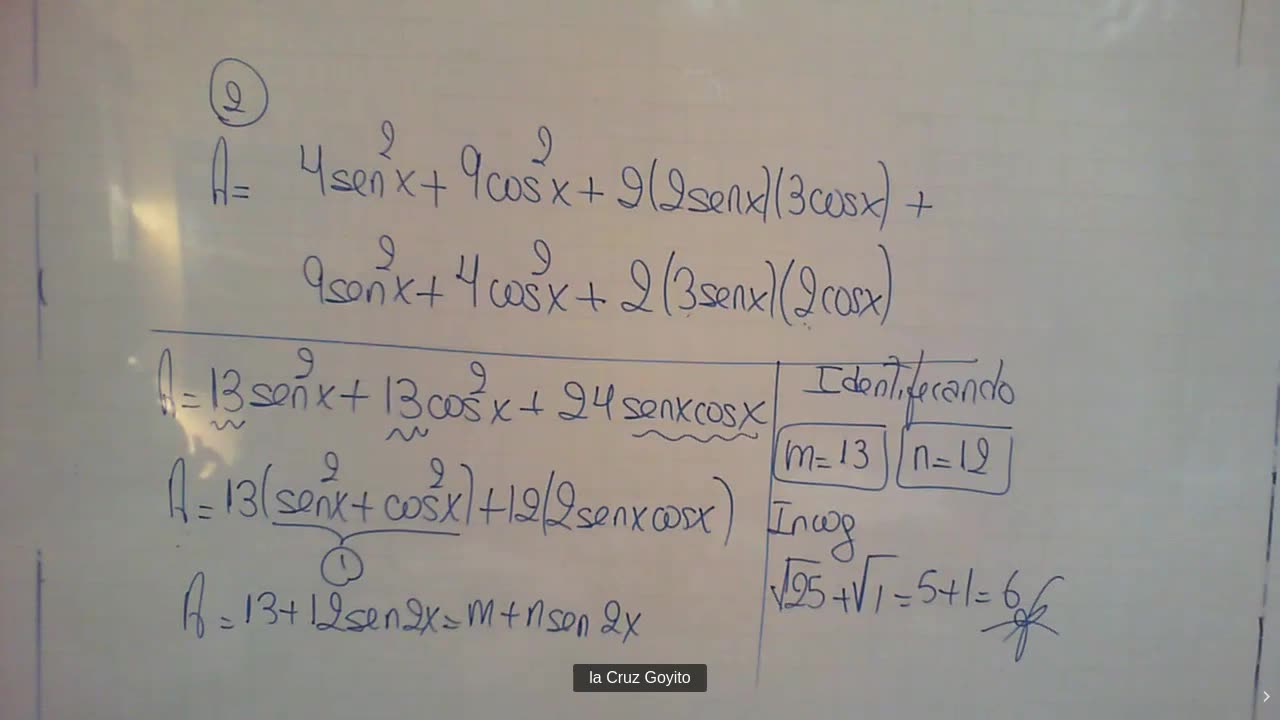 2
A= 4sen²x+ 9cos²x+ 2(2senx)(3cosx) +
9sen²x+ 4cos²x+ 2(3senx)(2cosx)
A= 13sen²x+ 13cos²x+ 24senxcosx
A= 13(sen²x+ cos²x)+12(2senxcosx)
1
A= 13+12sen2x= m+nsen2x
Identificando
m=13 n=12
Incog
√25+√1=5+1=6
la Cruz Goyito